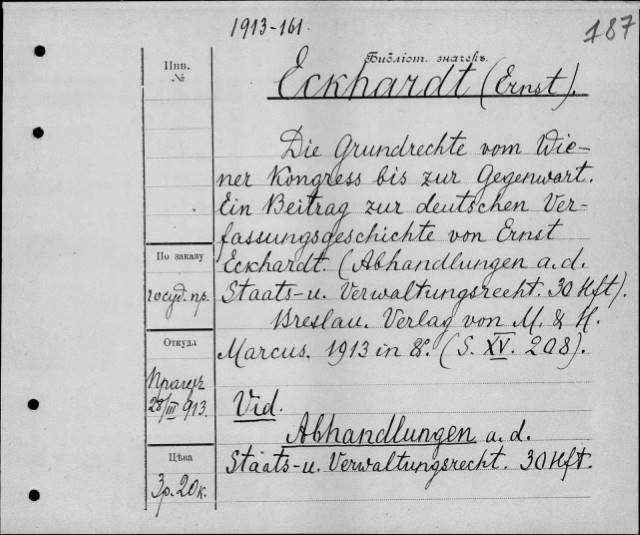 1913-161.
187
Инв.
№
Библіот. значекъ.
Eckhardt (Ernst).
Die Grundrechte vom Wie-
ner Kongress bis zur Gegenwart.
Ein Beitrag zur deutschen Ver-
fassungsgeschichte von Ernst
Eckhardt. (Abhandlungen a. d.
Staats- u. Verwaltungsrecht. 30 Hft).
Breslau. Verlag von M. & H.
Marcus. 1913 in 8º. (S. XV. 208).
Vid.
Abhandlungen a. d.
Staats- u. Verwaltungsrecht. 30 Hft.
По заказу
госуд. пр.
Откуда
Прагеръ
28/III 913.
Цѣна
3р. 20к.